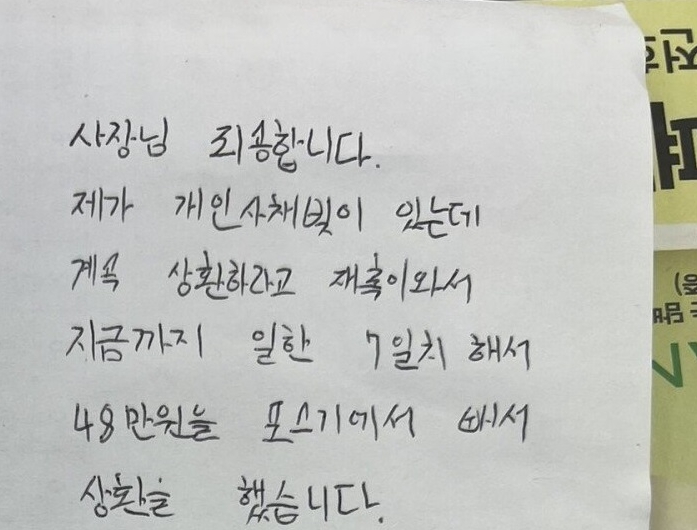 사장님 죄송합니다.
제가 개인사채빚이 있는데
계속 상환하라고 재촉이와서
지금까지 일한 7일치 해서
48만원을 포스기에서 빼서
상환을 했습니다.